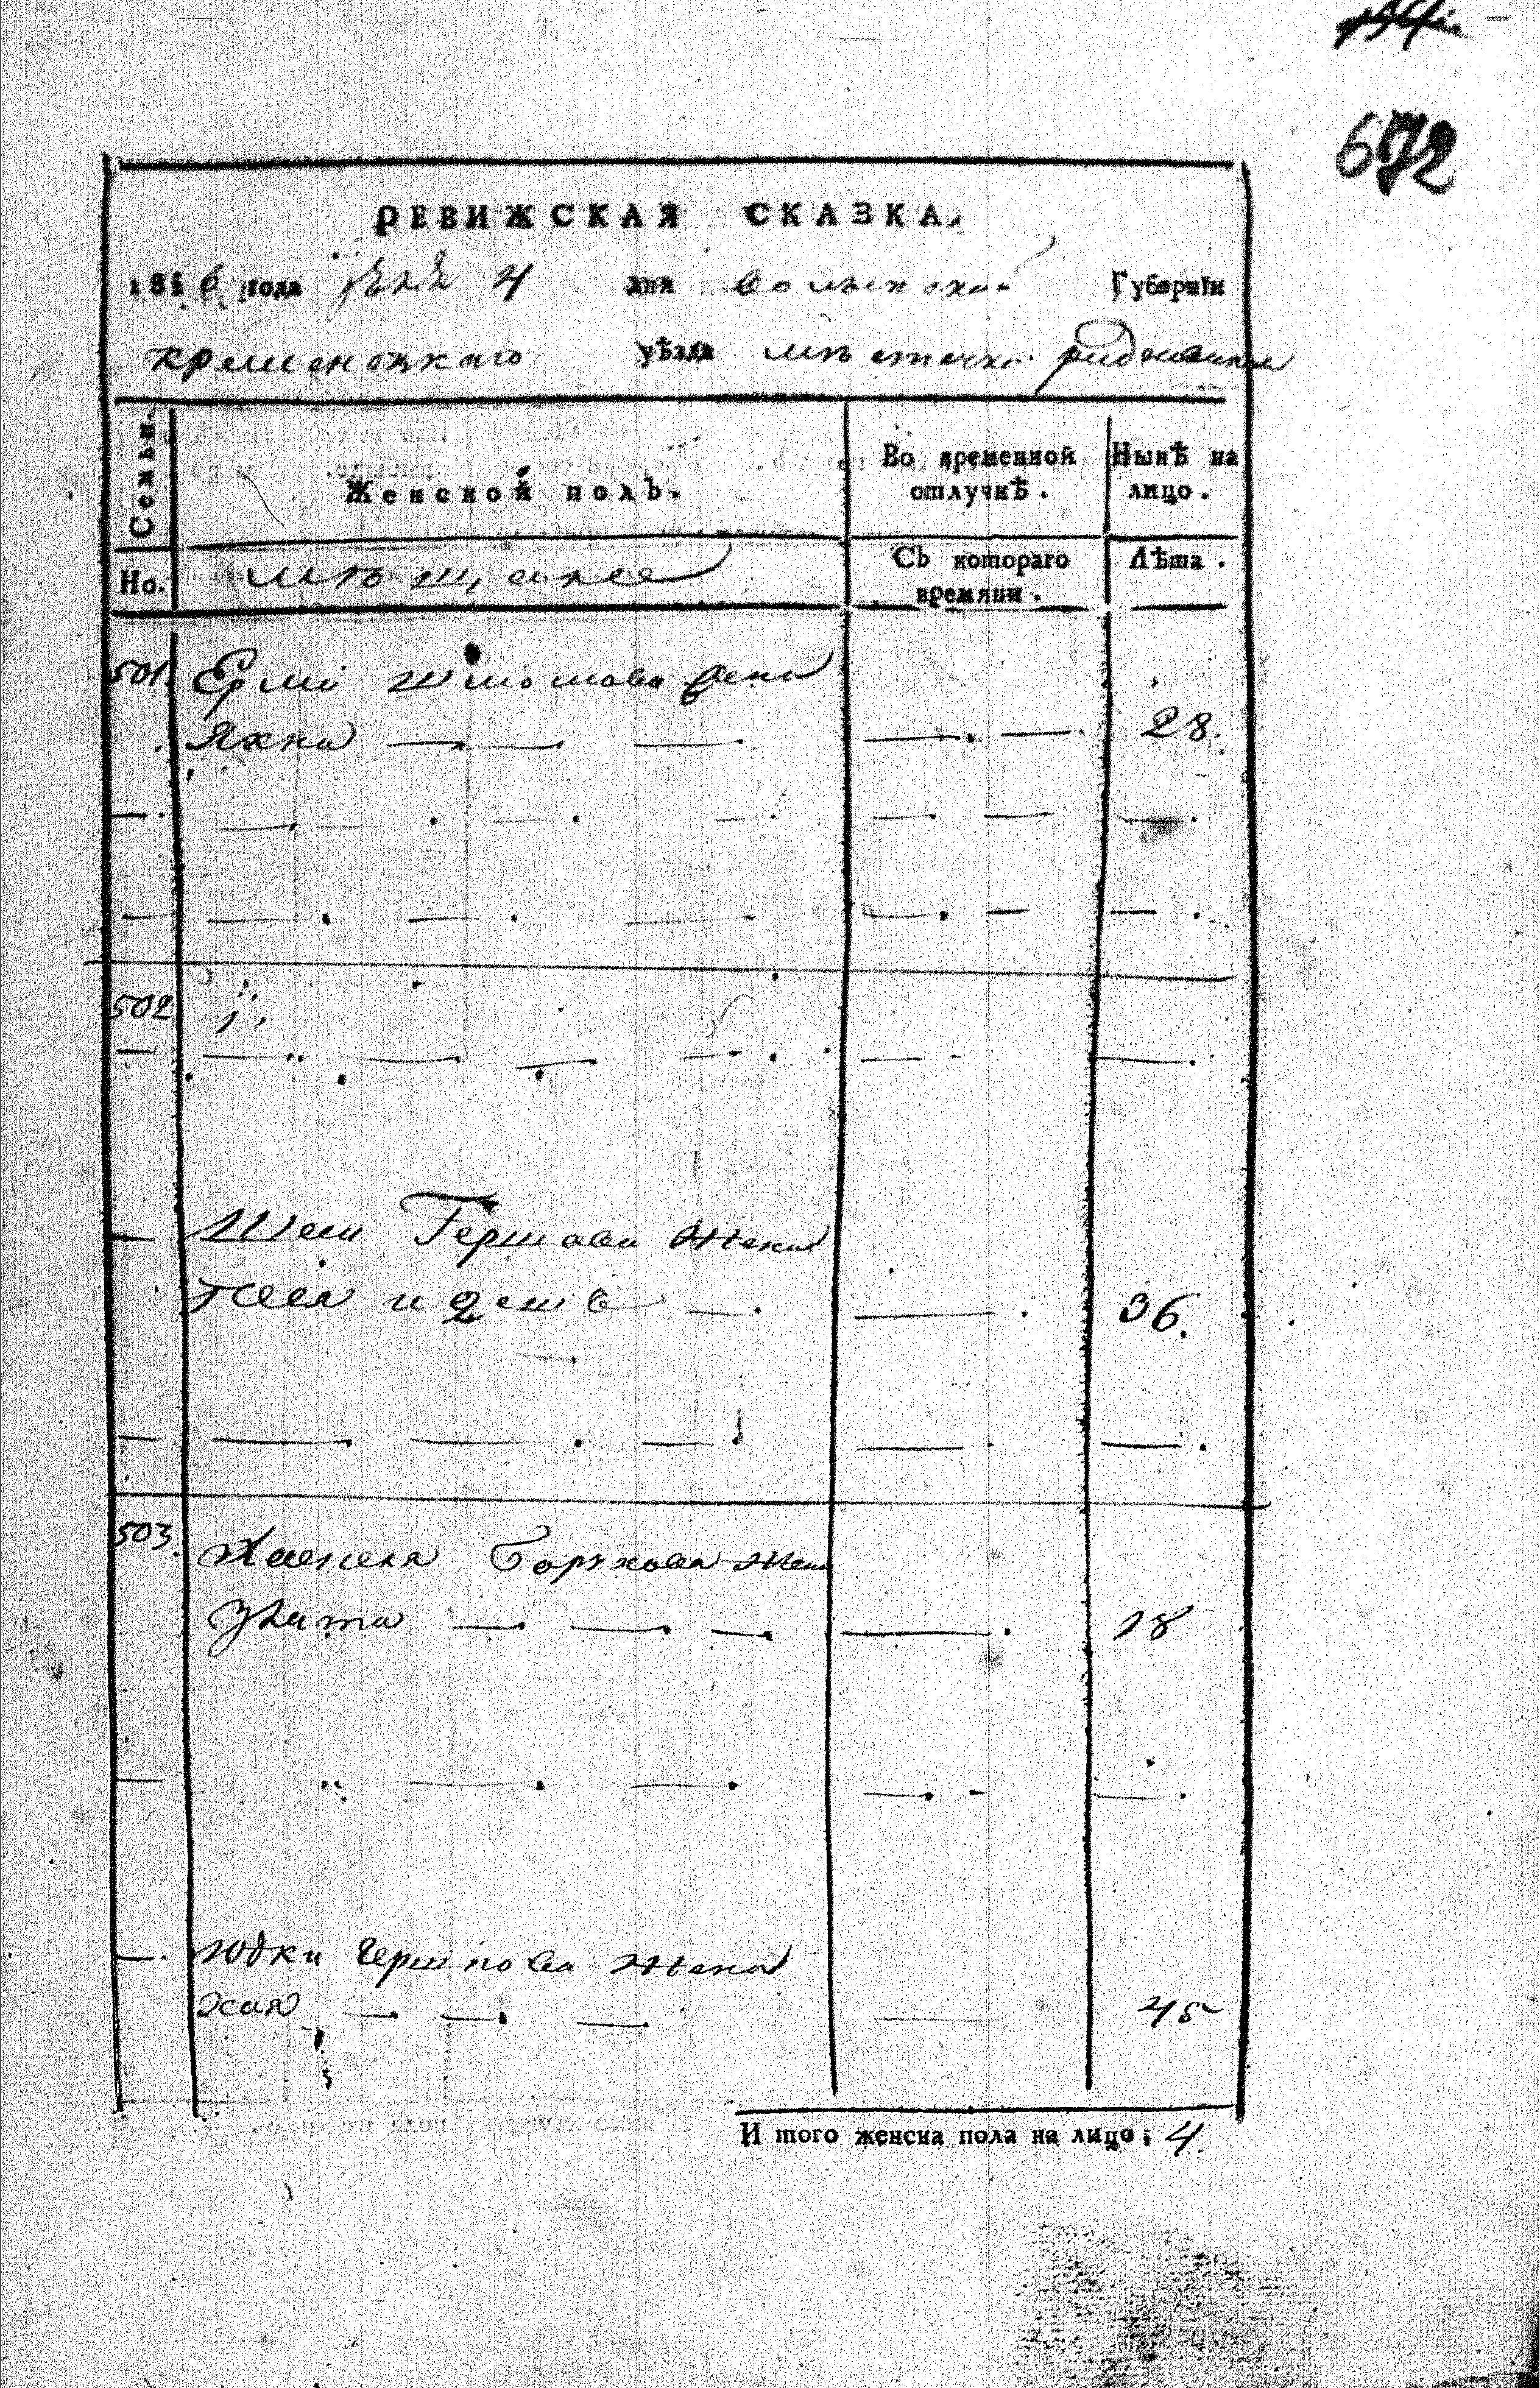 672
РЕВИЖСКАЯ СКАЗКА.
1816 года 4 дня волынской Губерніи
кременецкаго уѣзда мѣстечка радзивилова
Семьи.
Женской полъ.
Во временной отлучкѣ.
Нынѣ на лицо.
Но.
мѣщанѣ
Съ котораго времяни.
Лѣта.
501. Ерми жена
Яхна — — — — — 28.
502
Гершова жена
и 36.
503. Борухова жена
Злата — — — — 18
Юдки Гершкова жена
хая — — — 45
И того женска пола на лицо; 4.